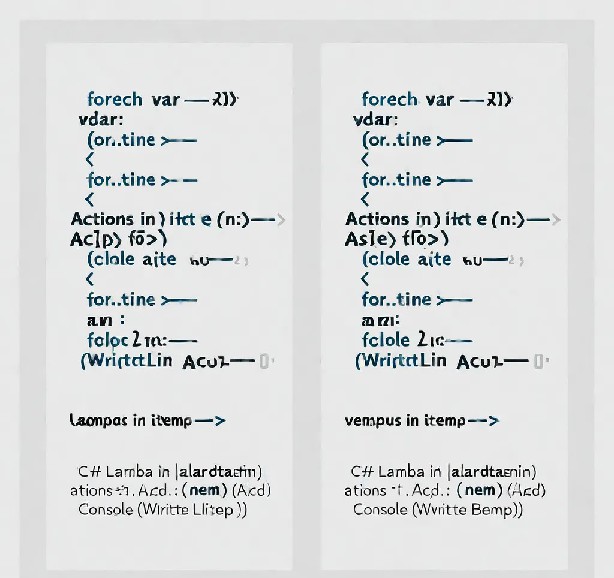 forech var — 21)
vdar:
(or..tine >—
<
for..tine >—-
<
Actions in) itct e (n:)—>
Ac]p) fo>)
(clole aite
<
for..tine >—
2 in:—
(WrirtctLin Acu2— 0·
in itemp—>
C# Lamba in |alardtaetin)
ations . Acd.: (nem) (Acd)
Console (Wiritte Llitep))
forech var — 21)
vdar:
(or..tine >—
<
for..tine >—
<
Actions in) itct e (n:)—>
As]e) flo>)
(clole a[te
<
for..tine >—
fclole 2
(Wrirtct Lin Acu2— 0·
vempus in itemp—>
C# Lamba in |alardtaenin)
ations . Acd.: (nem) (Acd)
Console (Wvritte Bemp))